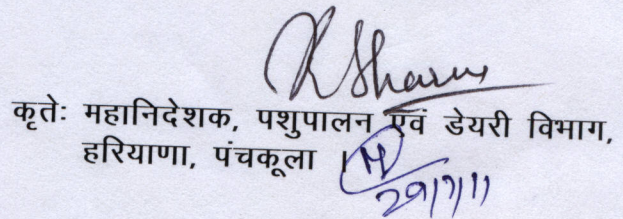 RSharma
कृतेः महानिदेशक, पशुपालन एवं डेयरी विभाग,
हरियाणा, पंचकूला ।
29/7/11